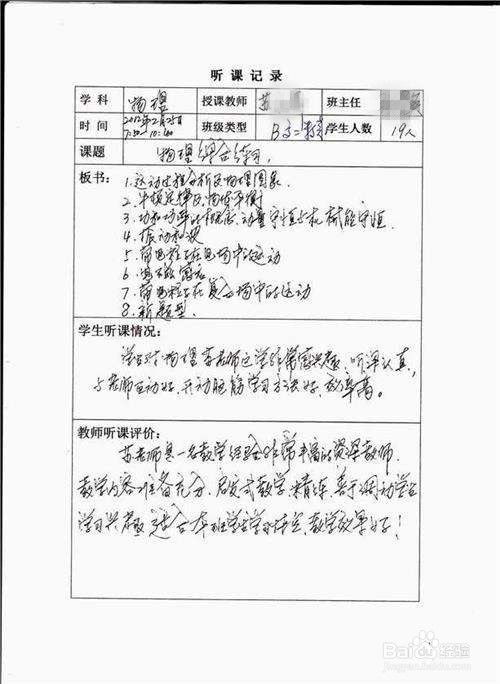 听课记录
学科 物理 授课教师 苏 班主任
时间 2012年2月25日 7:50—10:00 班级类型 学生人数 19人
课题 物理综合练习
板书: 1.运动过程分析及物理图象.
2.牛顿定律及物体平衡
3.功和功率的概念,动量守恒与机械能守恒
4.振动和波
5.带电粒子在电场中的运动
6.电磁感应
7.带电粒子在复合场中的运动
8.新题型.
学生听课情况:
学生对物理李老师这学非常感兴趣,听课认真,
与老师互动好,开动脑筋学习方法好,效率高。
教师听课评价:
苏老师是一名教学经验非常丰富的资深教师.
教学内容准备充分,启发式教学,精练,善于调动学生
学习兴趣,适合本班学生学习,教学效果好!
Baidu经验
jingyan.baidu.com